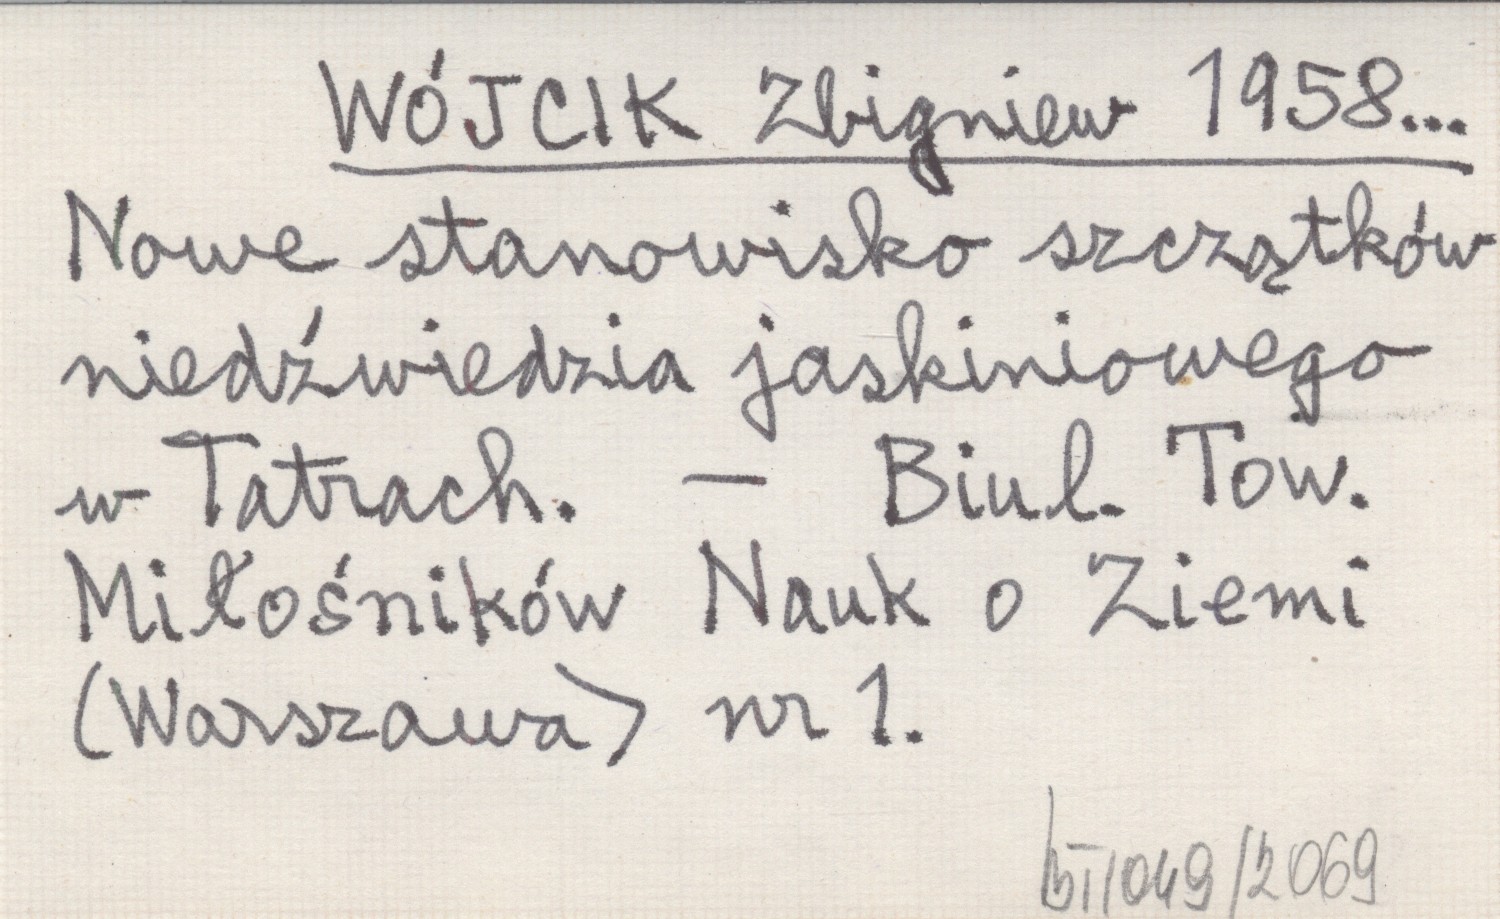 WÓJCIK Zbigniew 1958...
Nowe stanowisko szczątków
niedźwiedzia jaskiniowego
w Tatrach. — Biul. Tow.
Miłośników Nauk o Ziemi
(Warszawa) nr 1.
/2069